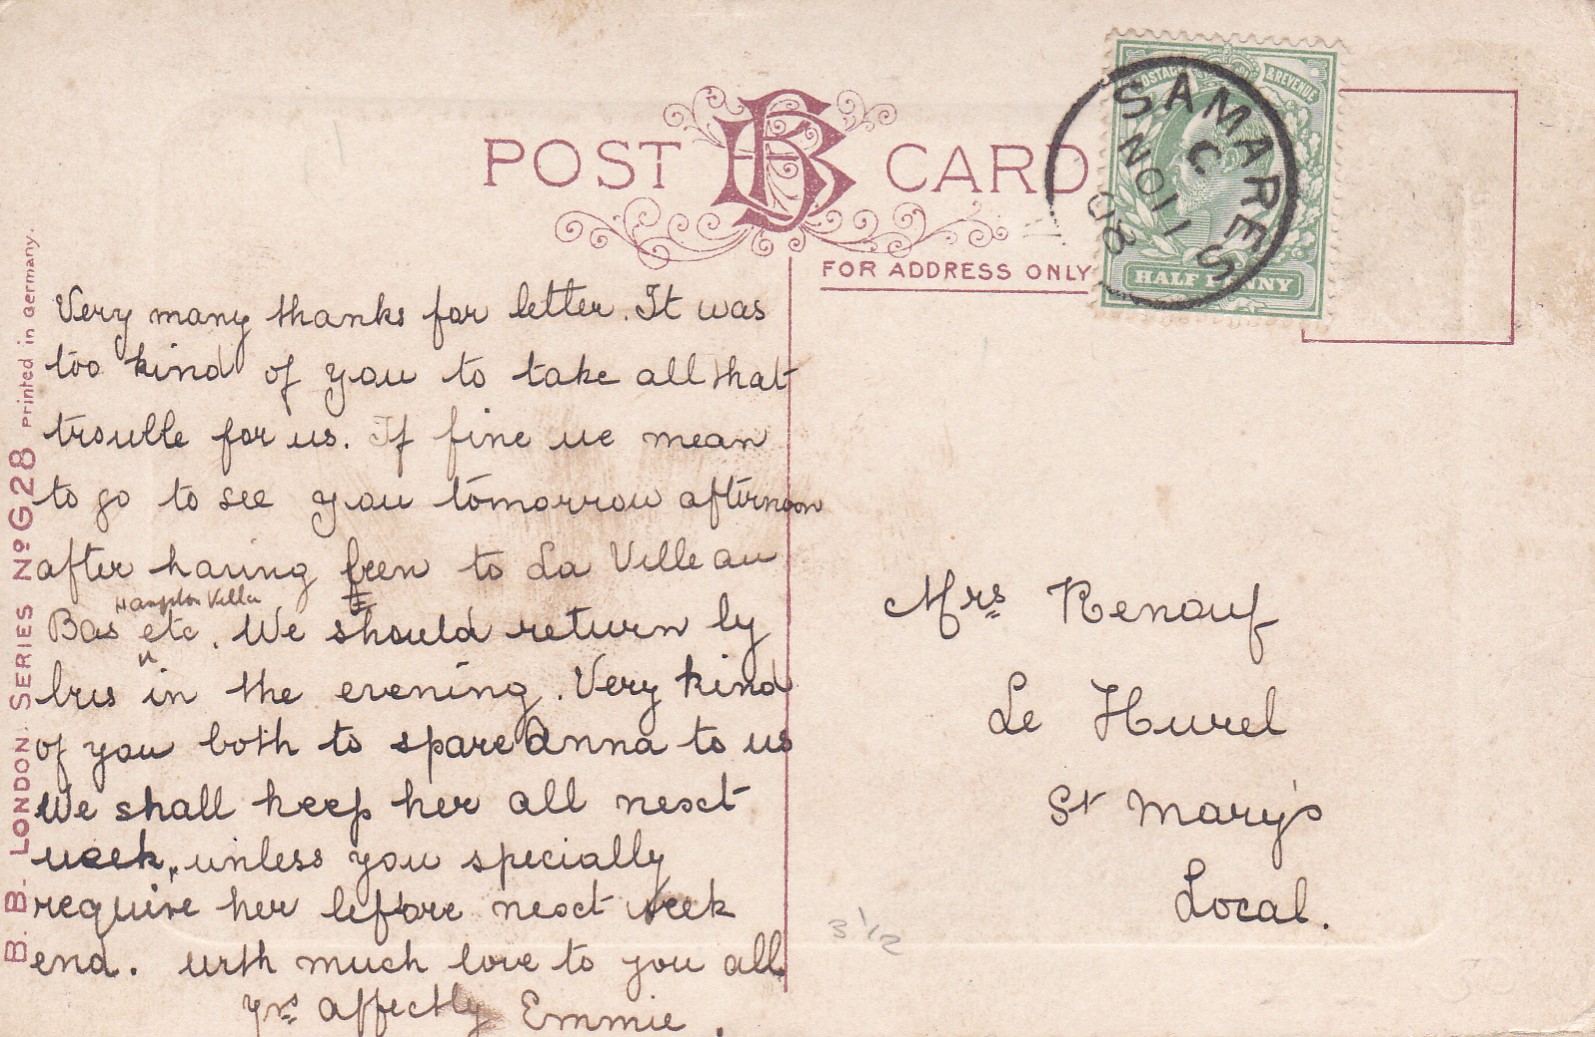 POST BB CARD
FOR ADDRESS ONLY
POSTAGE & REVENUE
HALF PENNY
SAMARES
C
NO 11
08
B. B. LONDON. SERIES Nº G28 Printed in Germany.
Very many thanks for letter. It was
too kind of you to take all that
trouble for us. If fine we mean
to go to see you tomorrow afternoon
after having been to La Ville au
Hampton Villa
Bas etc. We should return by
bus in the evening. Very kind
of you both to spare Anna to us
We shall keep her all next
week, unless you specially
require her before next week
end. With much love to you all
Yrs affectly Emmie.
Mrs Renouf
Le Hurel
St Mary's
Local.
3 1/2